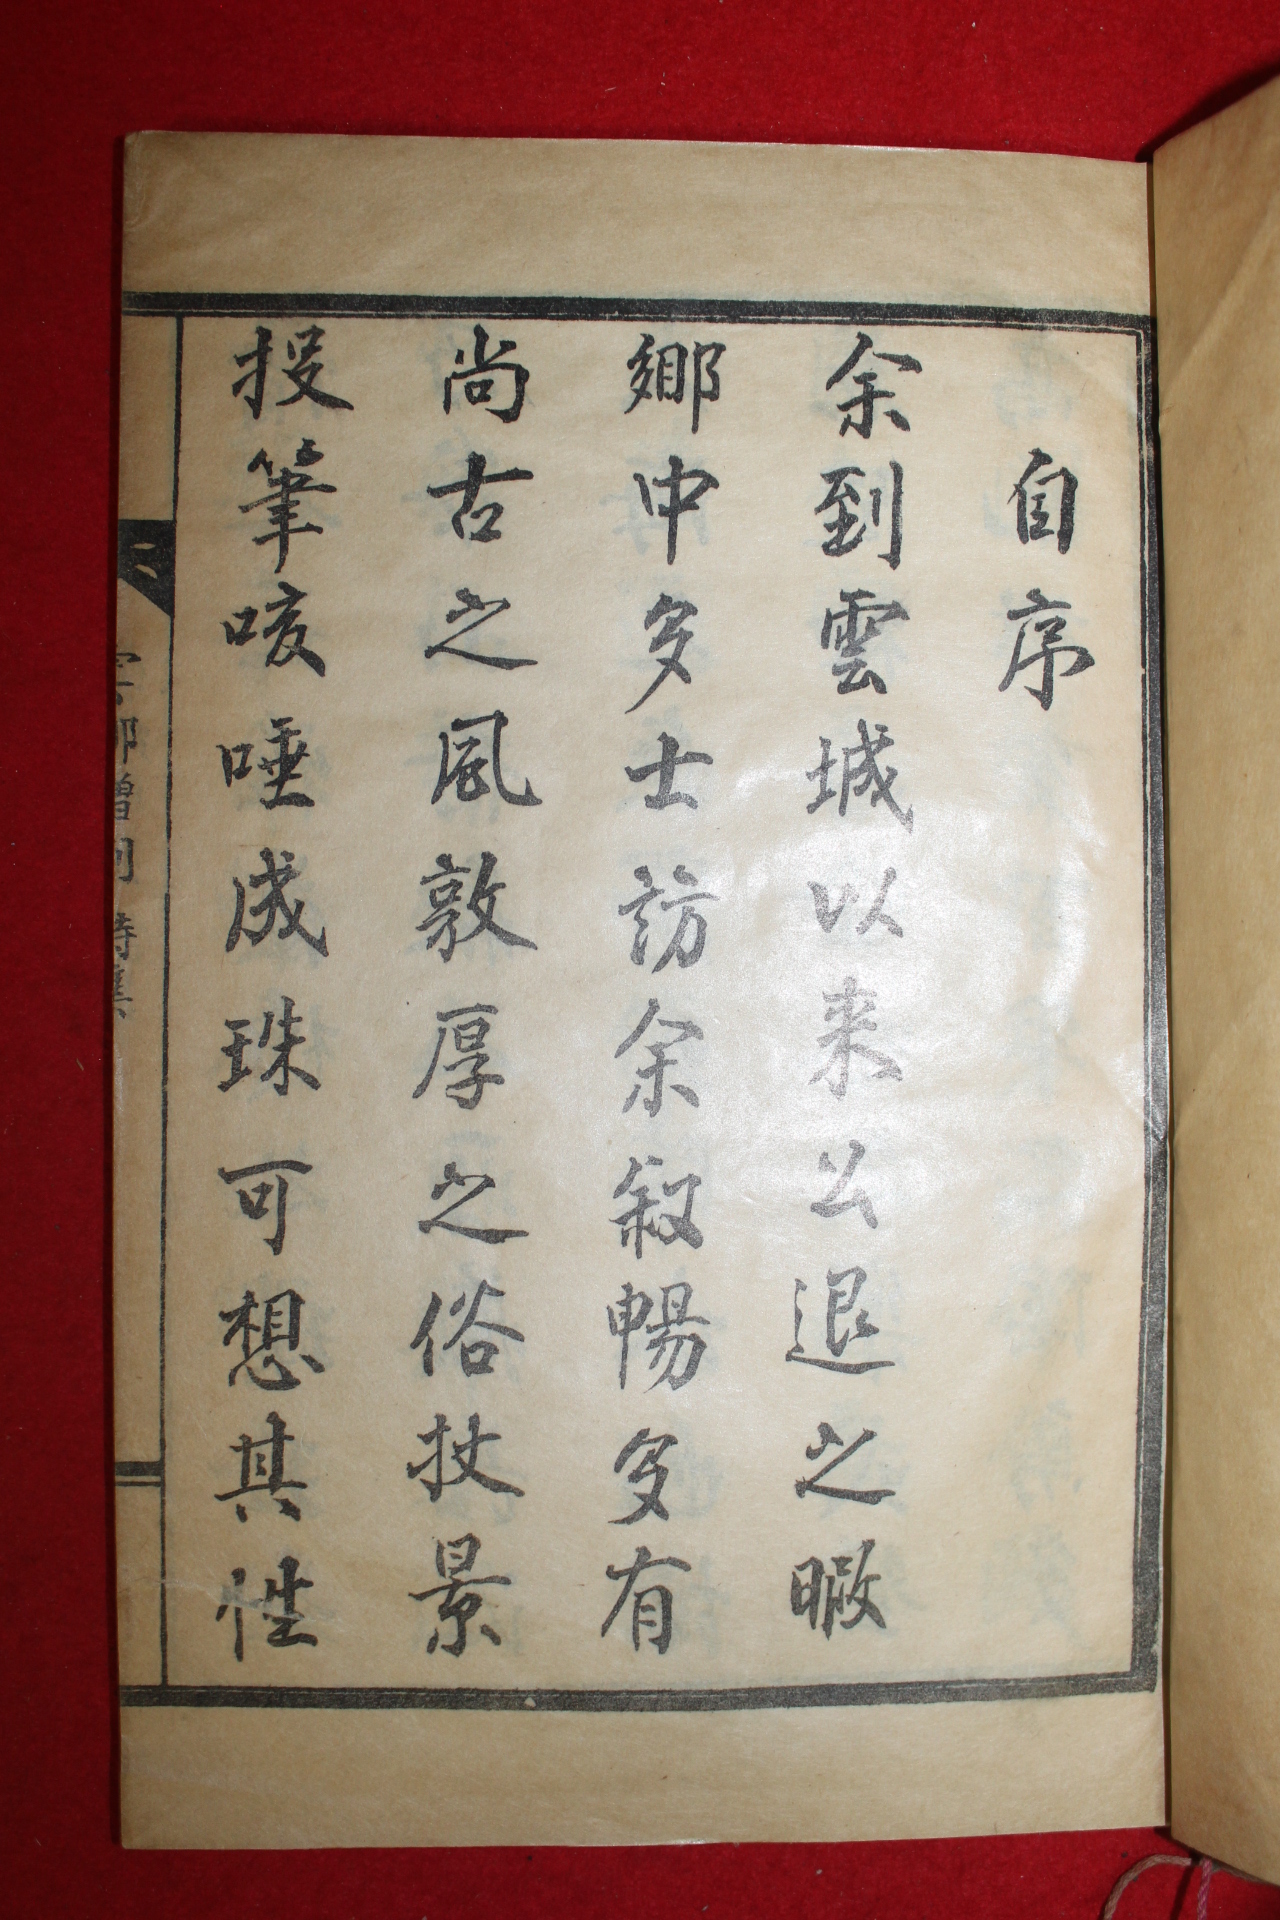 自序
余到雲城以来公退之暇
鄉中多士訪余叙暢多有
尚古之風敦厚之俗技景
投筆咳唾成珠可想其性